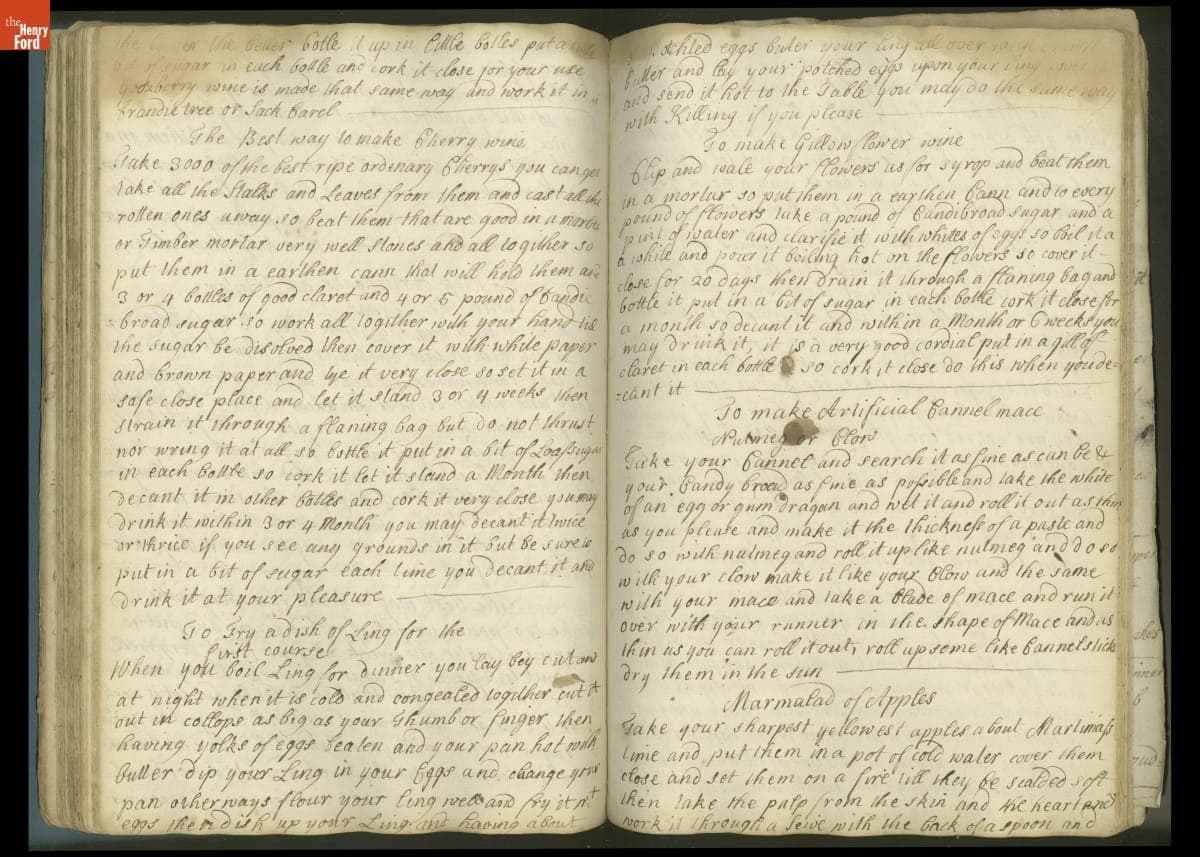 the Henry Ford
the better botle it up in little botles put a little
bit of sugar in each bottle and cork it close for your use
Goozberry wine is made that same way and work it in a
brandie tree or Sack barel
The Best way to make Cherry wine
Take 3000 of the best ripe ordinary Cherrys you can get
take all the Stalks and Leaves from them and cast all the
rotten ones away so beat them that are good in a marble
or Timber mortar very well stones and all togither so
put them in a earthen cann that will hold them and
3 or 4 bottles of good claret and 4 or 5 pound of Candie
=broad sugar so work all togither with your hand till
the sugar be disolved then cover it with white paper
and brown paper and tye it very close so set it in a
safe close place and let it stand 3 or 4 weeks then
strain it through a flaning bag but do not thrust
nor wring it at all so bottle it put in a bit of Loafsugar
in each bottle so cork it let it stand a Month then
decant it in other botles and cork it very close you may
drink it within 3 or 4 Month you may decant it twice
or thrice if you see any grounds in it but be sure to
put in a bit of sugar each time you decant it and
drink it at your pleasure
To Fry a dish of Ling for the
first course
When you boil Ling for dinner you lay bey cut and
at night when it is cold and congealed together cut it
out in collops as big as your thumb or finger then
having yolks of eggs beaten and your pan hot with
butter dip your Ling in your Eggs and change your
pan otherways flour your ling well and fry it wt
eggs then dish up your Ling and having about
potched eggs buter your ling all over with
butter and lay your potched eggs upon your ling
and send it hot to the Table you may do the same way
with Killing if you please
To make Gillowflower wine
Clip and wale your flowers as for syrop and beat them
in a mortar so put them in a earthen Cann and to every
pound of flowers take a pound of Candibroad sugar and a
pint of water and clarifie it with whites of eggs so boil it a
a while and pour it boiling hot on the flowers so cover it
close for 20 days then drain it through a flaning bag and
bottle it put in a bit of sugar in each botle cork it close for
a month so decant it and within a Month or 6 weeks you
may drink it, it is a very good cordial put in a gill of
claret in each bottle so cork it close do this when you de=
=cant it
To make Artificial Cannel mace
Nutmeg or Clow
Take your Cannel and search it as fine as can be &
your Candy broad as fine as possible and take the white
of an egg or gum dragan and wet it and roll it out as thin
as you please and make it the thickness of a paste and
do so with nutmeg and roll it up like nutmeg and do so
with your clow make it like your Clow and the same
with your mace and take a blade of mace and run it
over with your runner in the shape of Mace and as
thin as you can roll it out, roll up some like Cannel sticks
dry them in the sun
Marmalad of Apples
Take your sharpest yellowest apples about Martimass
time and put them in a pot of cold water cover them
close and set them on a fire till they be scalded soft
then take the pulp from the skin and the heart and
work it through a seive with the back of a spoon and